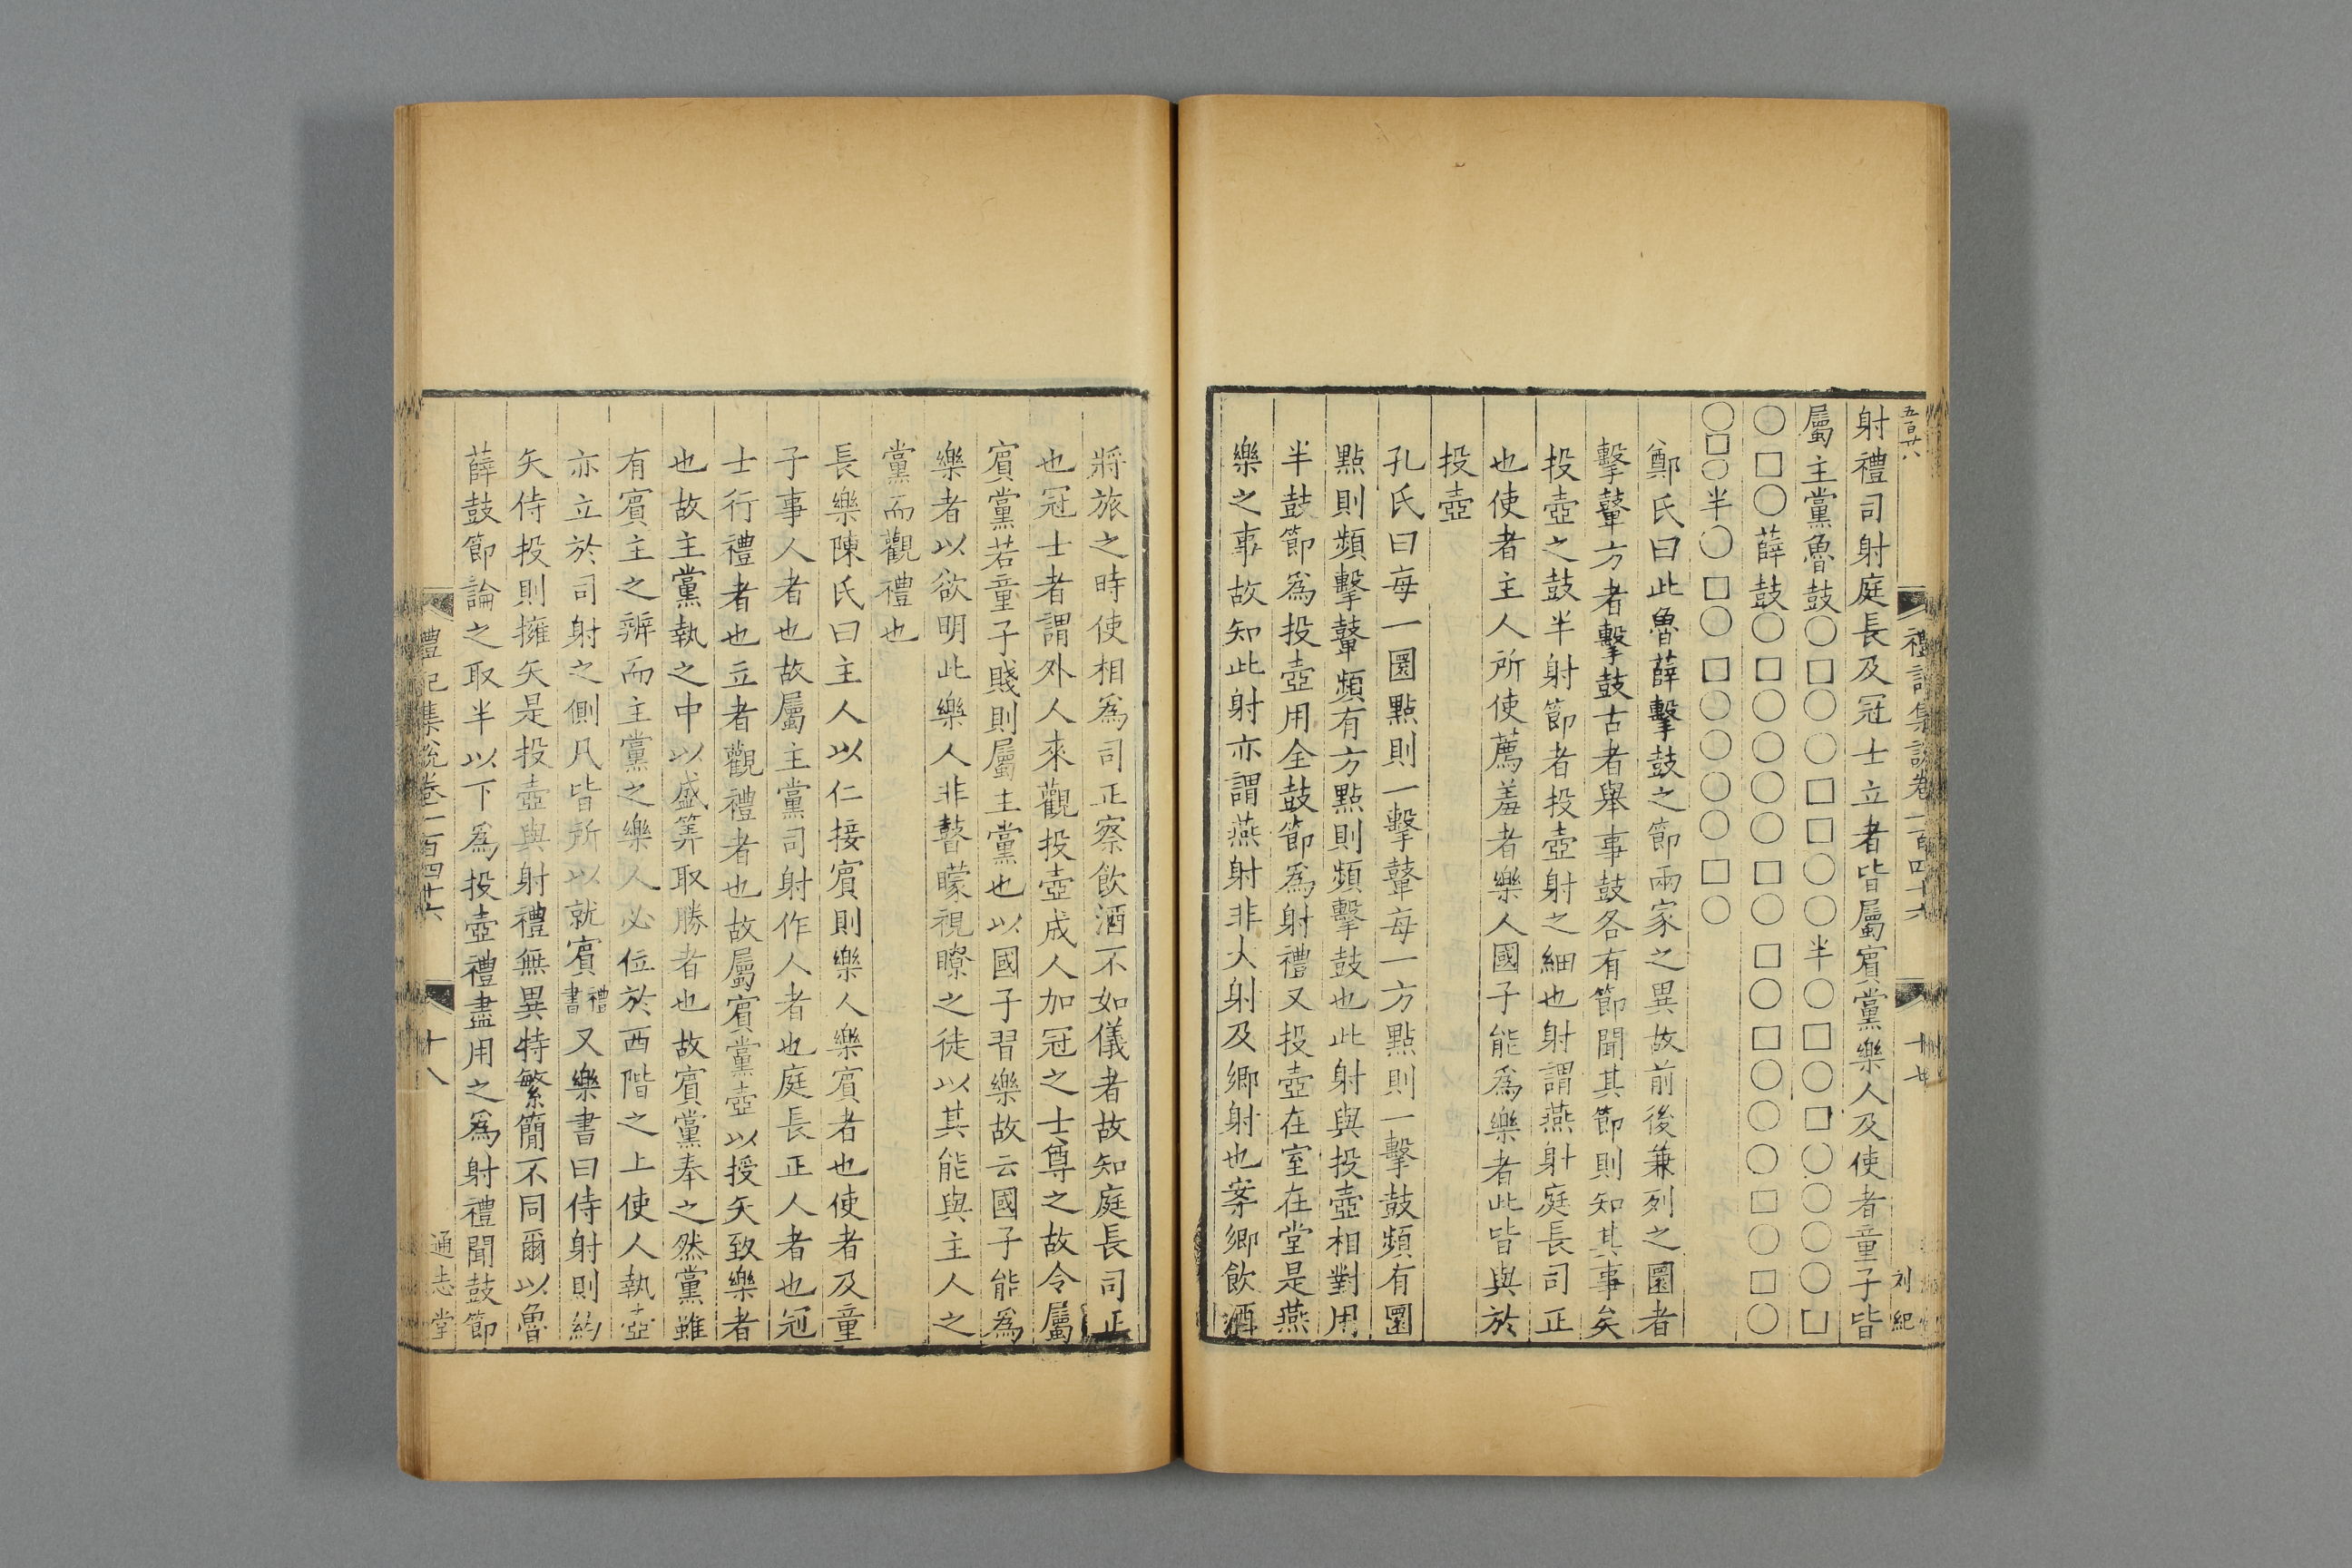 五百廿八
禮記集說卷一百四十六
刘紀
射禮司射庭長及冠士立者皆屬賓黨樂人及使者童子皆
屬主黨魯鼓○□○○□□○○半○□○□○○○□
○□○薛鼓○□○○○□○□○□○○○□○□○
○□○半○□○□○○○○□○
鄭氏曰此魯薛擊鼓之節兩家之異故前後兼列之圜者
擊鼙方者擊鼓古者舉事鼓各有節聞其節則知其事矣
投壺之鼓半射節者投壺射之細也射謂燕射庭長司正
也使者主人所使薦羞者樂人國子能為樂者此皆與於
投壺
孔氏曰每一圜點則一擊鼙每一方點則一擊鼓頻有圜
點則頻擊鼙頻有方點則頻擊鼓也此射與投壺相對用
半鼓節為投壺用全鼓節為射禮又投壺在室在堂是燕
樂之事故知此射亦謂燕射非大射及鄉射也案鄉飲酒
將旅之時使相為司正察飲酒不如儀者故知庭長司正
也冠士者謂外人來觀投壺成人加冠之士尊之故令屬
賓黨若童子賤則屬主黨也以國子習樂故云國子能為
樂者以欲明此樂人非瞽矇視瞭之徒以其能與主人之
黨而觀禮也
長樂陳氏曰主人以仁接賓則樂人樂賓者也使者及童
子事人者也故屬主黨司射作人者也庭長正人者也冠
士行禮者也立者觀禮者也故屬賓黨壺以授矢致樂者
也故主黨執之中以盛筭取勝者也故賓黨奉之然黨雖
有賓主之辨而主黨之樂人必位於西階之上使人執壺
亦立於司射之側凡皆所以就賓禮書又樂書曰侍射則約
矢侍投則擁矢是投壺與射禮無異特繁簡不同爾以魯
薛鼓節論之取半以下為投壺禮盡用之為射禮聞鼓節
禮記集說卷一百四十六
十八
通志堂